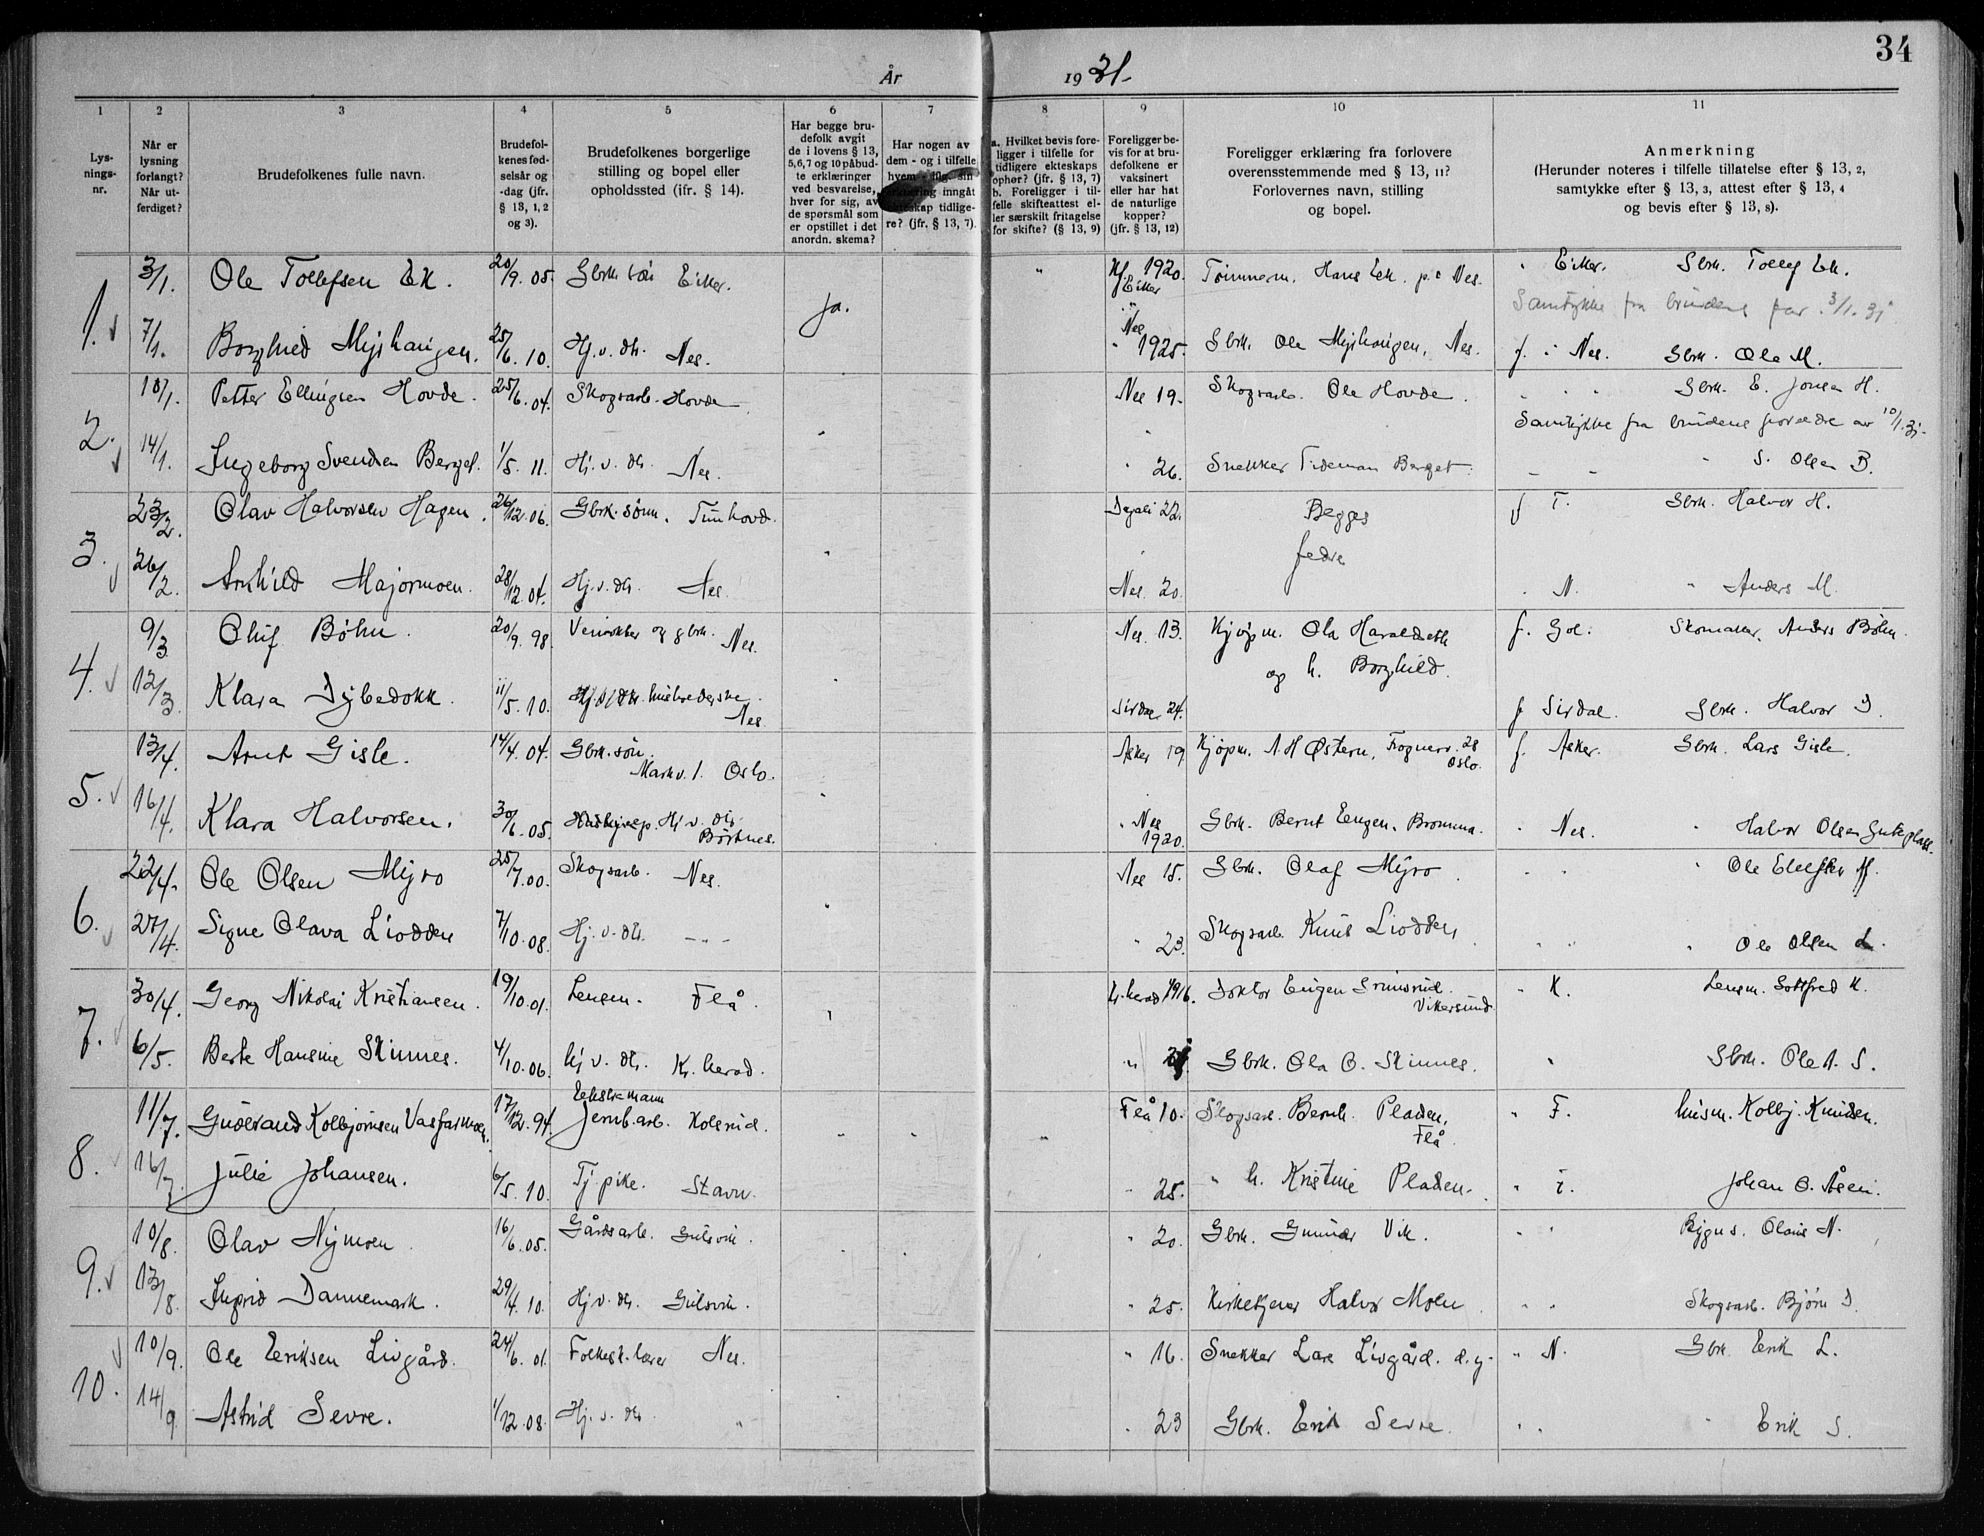 34
År 1931.
1 2 3 4 5 6 7 8 9 10 11
Lysningsnr.
Når er lysning forlangt? Når utferdiget?
Brudefolkenes fulle navn.
Brudefolkenes fødselsår og -dag (jfr. § 13, 1, 2 og 3).
Brudefolkenes borgerlige stilling og bopel eller opholdssted (ifr. § 14).
Har begge brudefolk avgit de i lovens § 13, 5,6,7 og 10 påbudte erklæringer ved besvarelse, hver for sig, av de spørsmål som er opstillet i det anordn. skema?
Har nogen av dem - og i tilfelle hvem inngått ekteskap tidligere? (jfr. § 13, 7).
a. Hvilket bevis foreligger i tilfelle for tidligere ekteskaps ophør? (jfr. § 13, 7) b. Foreligger i tilfelle skifteattest eller særskilt fritagelse for skifte? (§ 13, 9)
Foreligger bevis for at brudefolkene er vaksinert eller har hat de naturlige kopper? (jfr. § 13, 12)
Foreligger erklæring fra forlovere overensstemmende med § 13, 11? Forlovernes navn, stilling og bopel.
Anmerkning (Herunder noteres i tilfelle tillatelse efter § 13, 2, samtykke efter § 13, 3, attest efter § 13, 4 og bevis efter § 13, 8).
1. 3/1. Ole Tollefsen Ek. 20/9. 05. Gbrk søn Eiker. ja. " 1920. Eiker Tømmerm. Hans Ek. Nes. " Eiker. Gbrk. Tollef Ek.
Samtykke fra brudens far. 3/1. 31
7/1. Borghild Myrhaugen. 25/6. 10. Hj. v. dtr. Nes. Nes 1925. Gbrk. Ole Myrhaugen, Nes. f. i Nes. Gbrk. Ole M.
2. 10/1. Petter Ellingsen Hovde. 25/6. 04. Skogsarb. Hovde " Nes 19. Skogsarb. Ole Hovde. " " Gbrk. E. Jonsen H.
Samtykke fra brudens foreldre av 10/1. 31.
14/1. Ingeborg Svendsen Berget. 1/5. 11. Hj. v. dtr. Nes. " 26. Snekker Tideman Berget. " S. Olsen B.
3. 23/2. Olav Halvorsen Hagen. 26/12. 06. Gbrk. sønn. Tunhovd. " Dagali 22. Begges f T. Gbrk. Halvor H.
fedre
26/2. Arnhild Majormoen. 28/12. 04. Hj. v. dtr. Nes. Nes. 20. " N. " Anders M.
4. 9/3 Oluf Bøhn. 20/9. 98. og gbrk. Nes. Nes. 13. Kjøpm. Ola Haraldseth f. Gol. Skomaker. Anders Bøhn.
og h. Borghild.
12/3. Klara Dybedokk. 11/5. 10. Nes. Sirdal 24. f Sirdal. Gbrk. Halvor D.
5. 13/4. Arnt Gisle. 14/4. 04. Gbrk. søn. Markv. 1. Oslo. " Asker 19 Kjøpm. A. H Østern, Fognerv. 28 Oslo. f. Asker. Gbrk. Lars Gisle.
16/4. Klara Halvorsen. 30/6. 05. Hj. v. dtr. Børtnes. " Nes 1920. Gbrk. Bernt Eengen. Bromma. " Nes. " Halvor Olsen Guteplass.
6. 22/4. Ole Olsen Myro 25/7. 00. Skogsarb. Nes. " Nes 15. Gbrk. Olaf Myro. " " " Ole M.
27/4. Signe Olava Liodden 7/10. 08. Hj. v. dtr. - " - " 23. Skogsarb. Knut Liodden. " " " Ole Olsen L.
7. 30/4. Georg Nikolai Kristiansen. 19/10. 01. Lensm. Flå. " Kr. herad 1916. Doktor Eugen Grimsrud. Vikersund. " K. Lensm. Gottfred K.
6/5. Berte Hansine Skinnes. 4/10. 06. hj v. dtr. Kr. herad. " Gbrk. Ola O. Skinnes. " Gbrk. Ole A. S.
8. 11/7. Gulbrand Kolbjørnsen Vasfarmoen. 17/12. 94. Enkemann Jernb. arb. Kolsrud. " " " Flå 10. Skogsarb. Bernh. Pladen, Flå. " F. husm. Kolbj. Knudsen.
16/7. Julie Johansen. 6/5. 10. Tj. pike. Stavn. " 25. " h. Kristine Pladen. " i. Johan O. Åsen.
9. 10/8. Olav Nymoen. 16/6. 05. Gårdsarb. Gulsvik. " " 20. Gbrk. Gunnar Vik. " " Byggn s. Olaus N.
13/8. Ingrid Dannemark. 29/4. 10. Hj v. dtr. Gulsvik. " 25. Kirketjener Halvor Moen " " Skogsarb. Bjørn D.
10. 10/9. Ole Eriksen Livgård. 24/6. 01. Folkesk. lærer Nes. " 16. Snekker Lars Livgård. d. y. " N. Gbrk. Erik L.
14/9. Astrid Sevre. 1/12. 08. Hj. v. dtr " " 23 Gbrk. Erik Sevre. " " " Erik S.